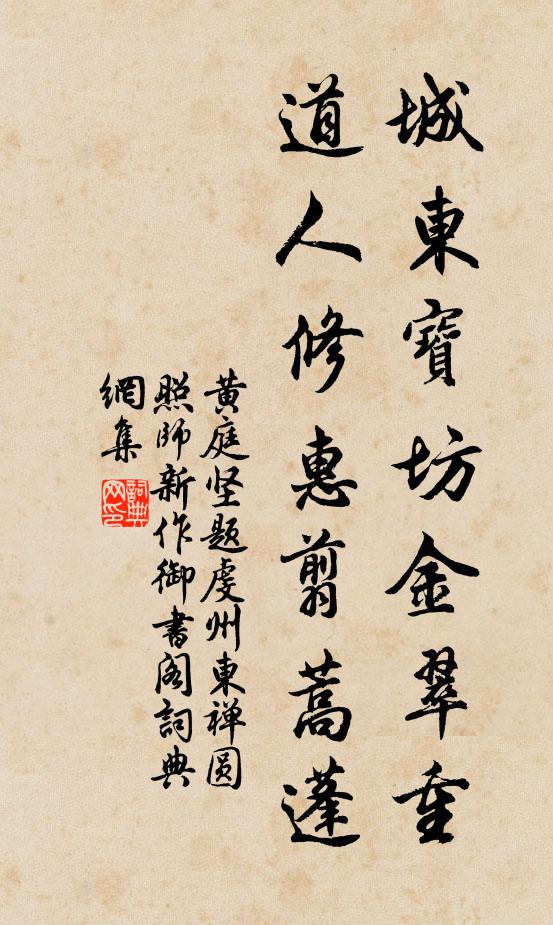 城東寶坊金翠重
道人修惠翦蒿蓬
黄庭坚題虔州東禅圆
照師新作御書阁詞典
網集
詞典网印